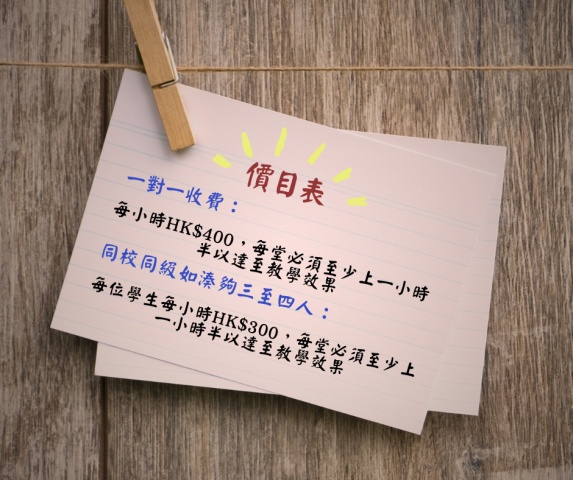 價目表
一對一收費：
每小時HK$400，每堂必須至少上一小時
半以達至教學效果
同校同級如湊夠三至四人：
每位學生每小時HK$300，每堂必須至少上
一小時半以達至教學效果